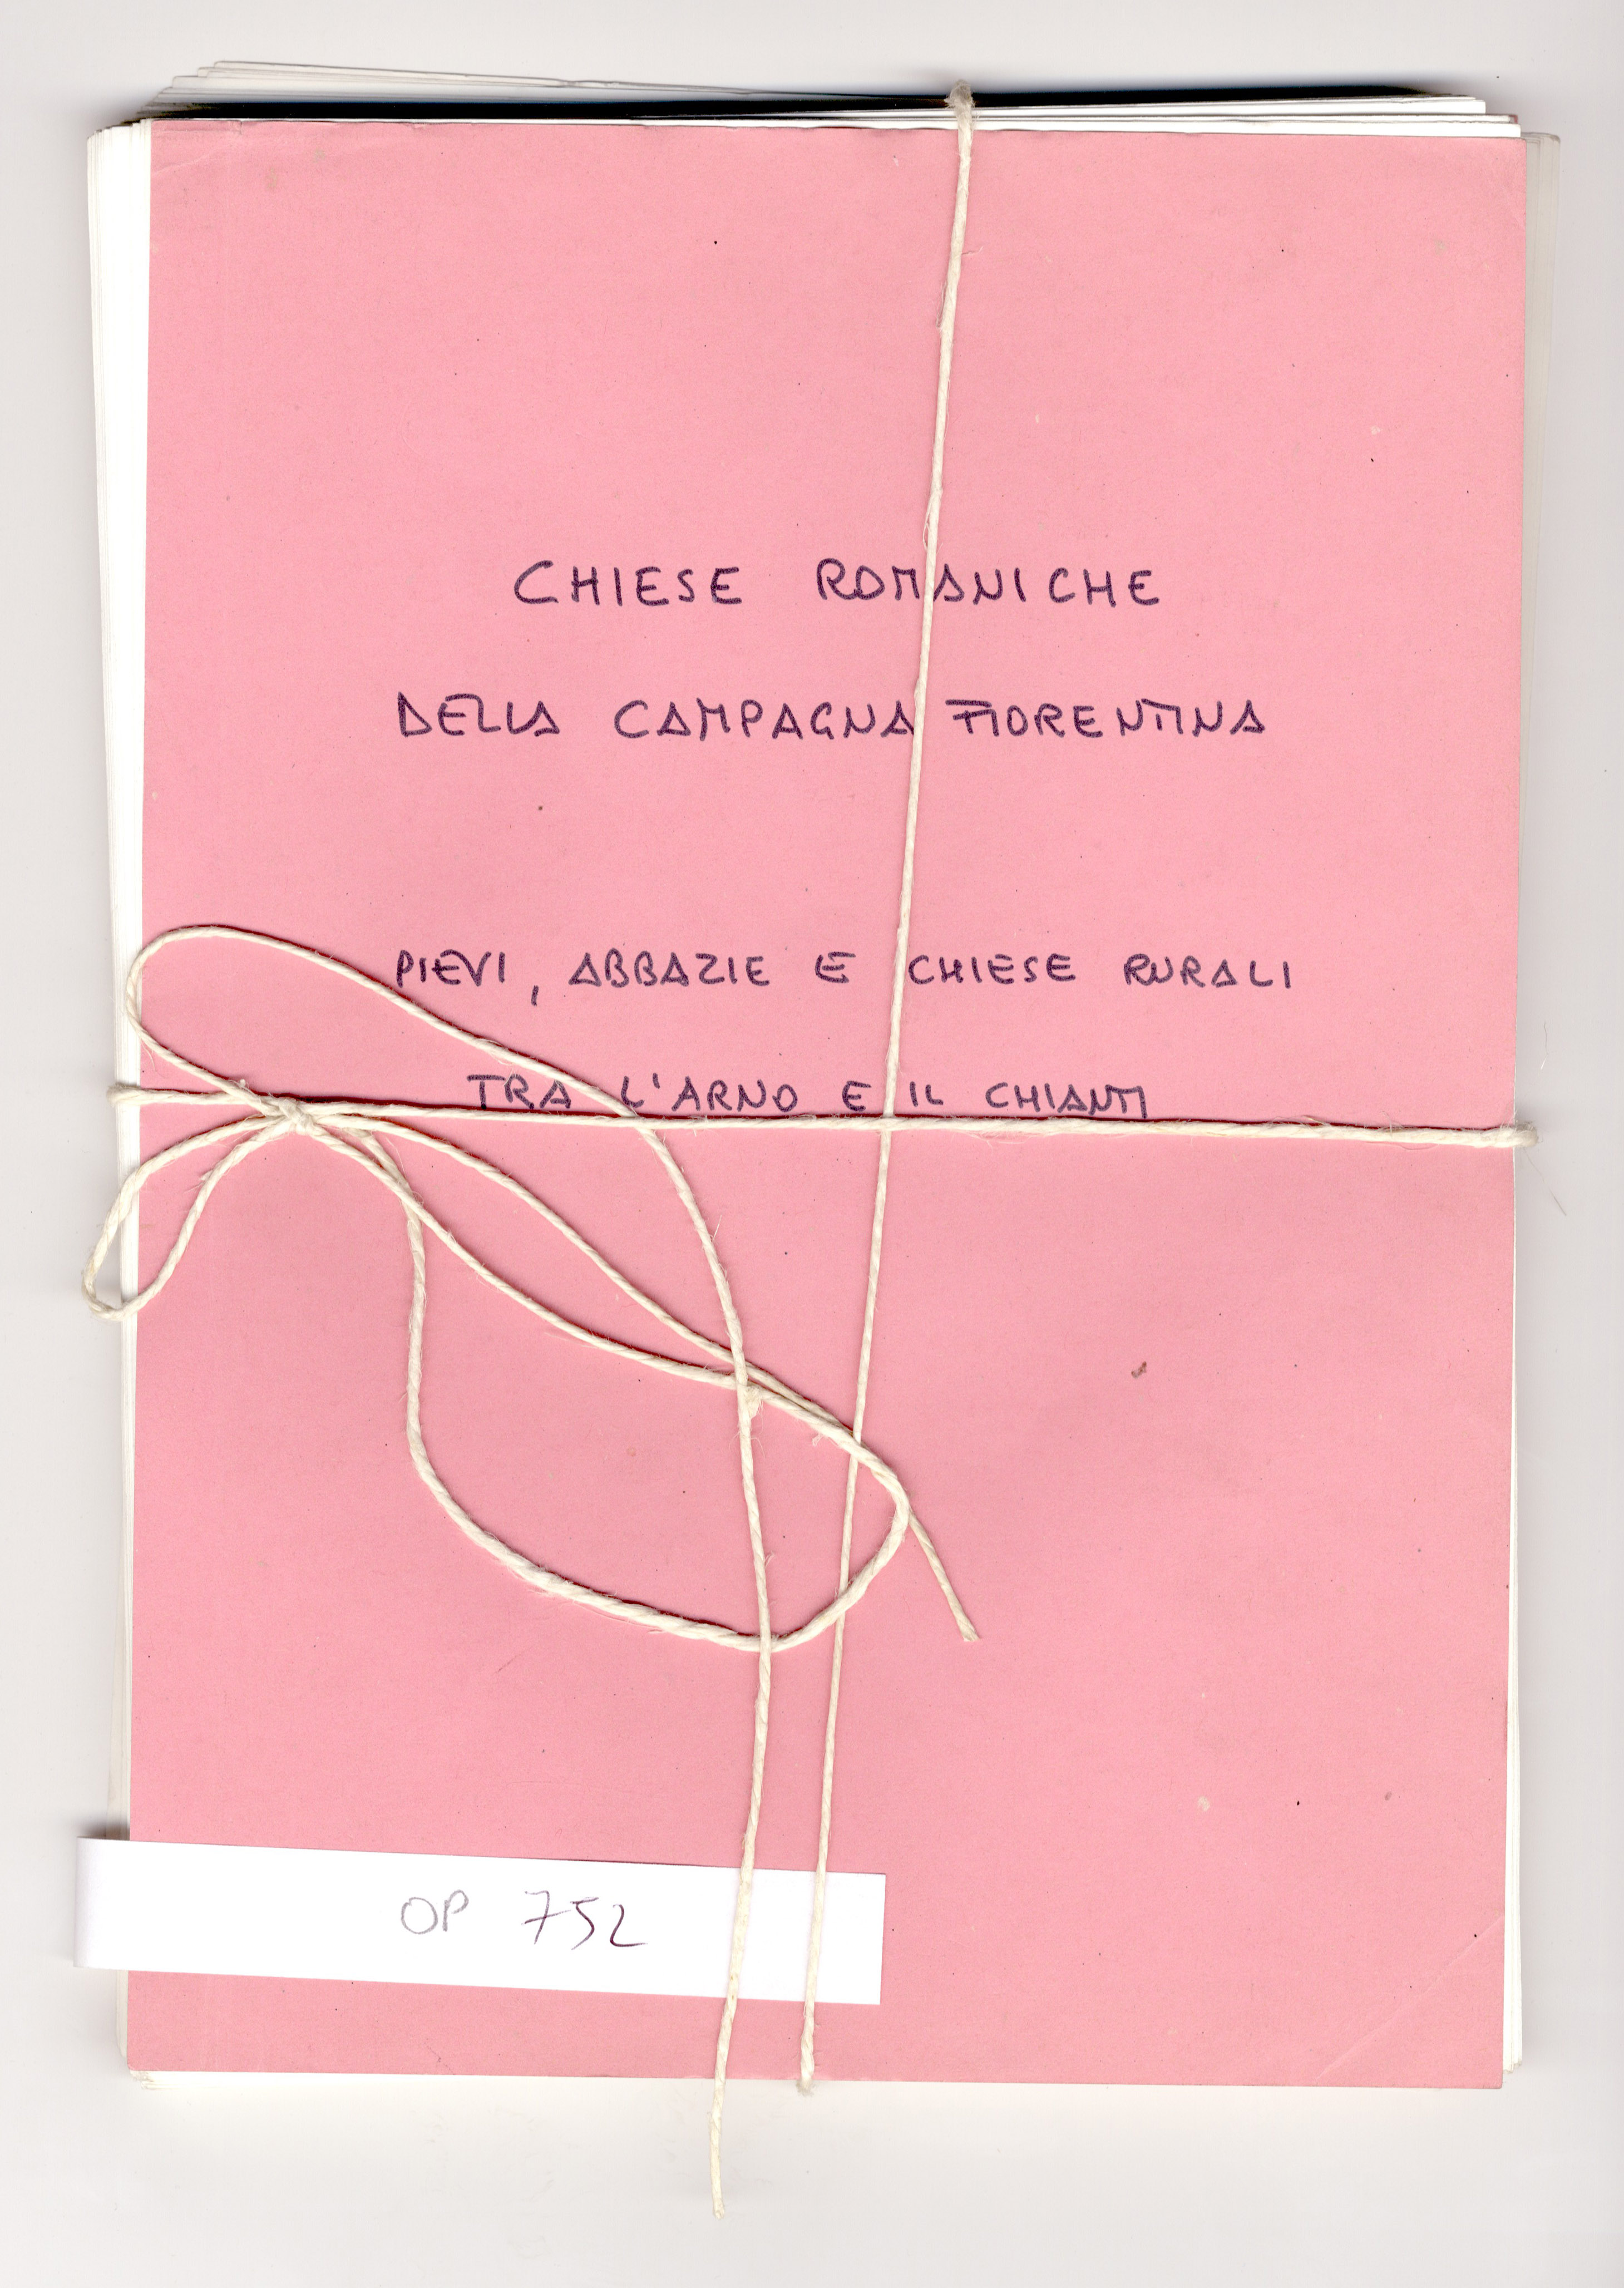 CHIESE ROMANICHE
DELLA CAMPAGNA FIORENTINA
PIEVI, ABBAZIE E CHIESE RURALI
TRA L'ARNO E IL CHIANTI
OP 752